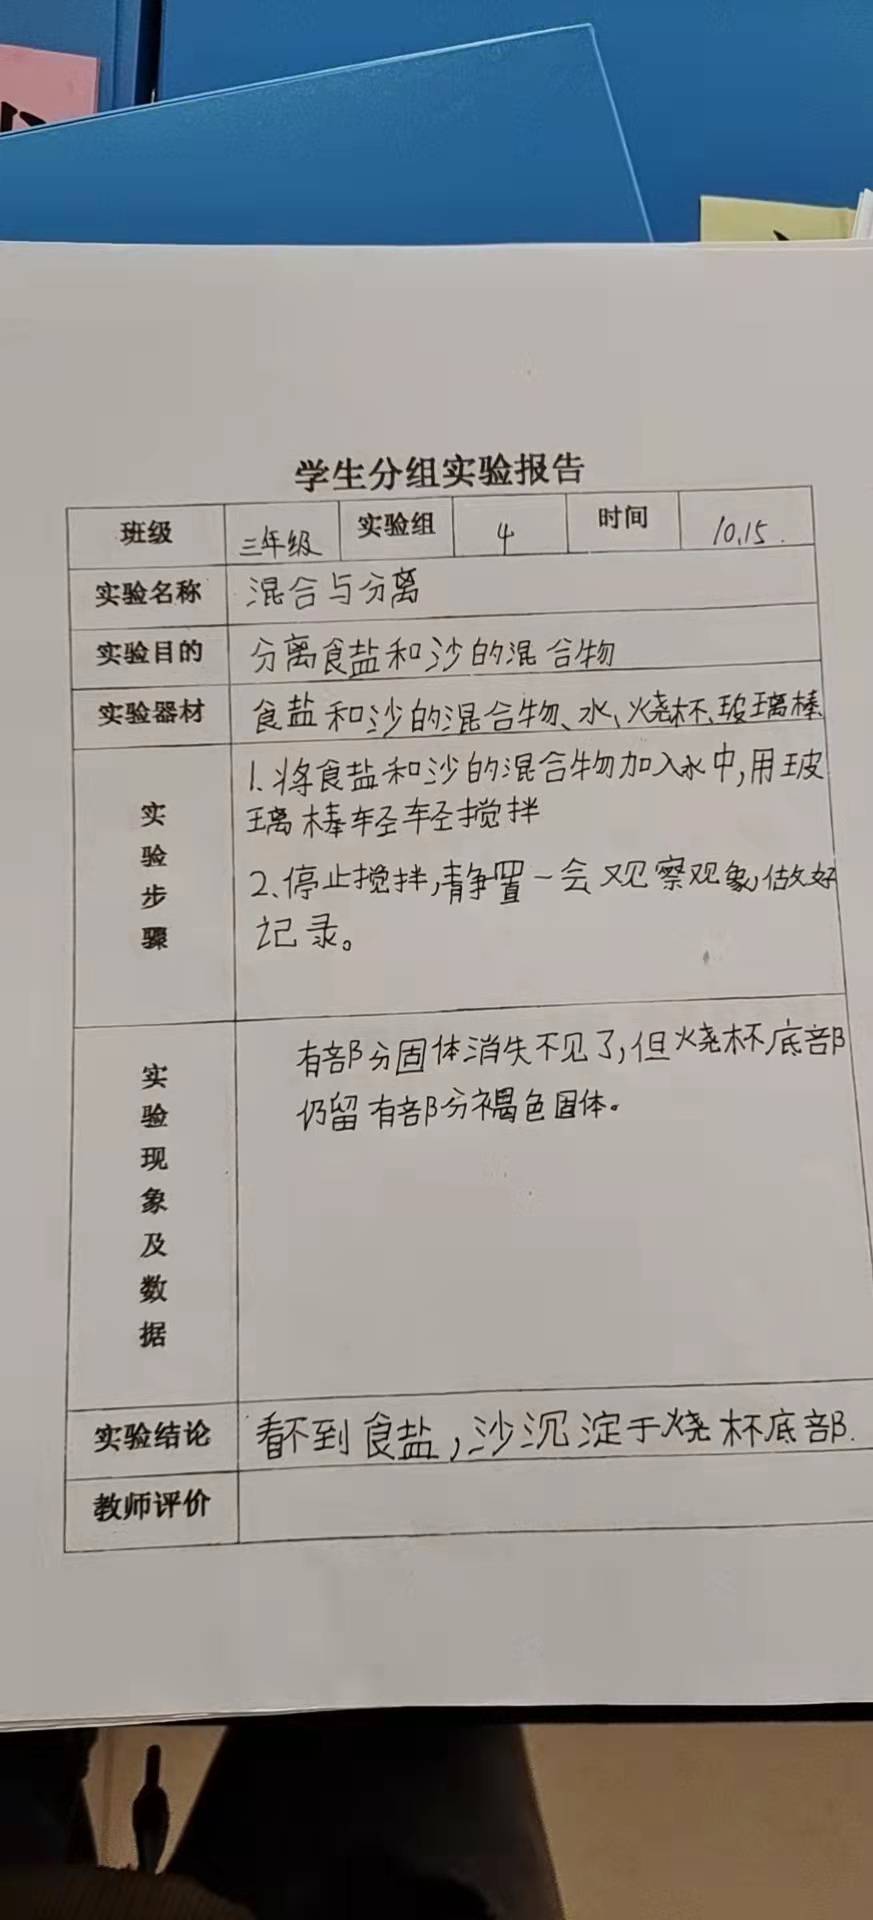 学生分组实验报告
班级 三年级 实验组 4 时间 10.15.
实验名称 混合与分离
实验目的 分离食盐和沙的混合物
实验器材 食盐和沙的混合物、水、烧杯、玻璃棒
实验步骤
1.将食盐和沙的混合物加入水中,用玻
璃棒轻轻搅拌
2.停止搅拌,静置一会观察观象,做好
记录。
实验现象及数据
有部分固体消失不见了,但烧杯底部
仍留有部分褐色固体。
实验结论 看不到食盐,沙沉淀于烧杯底部.
教师评价